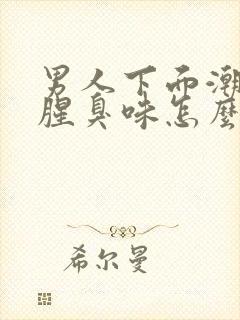 男人下面潮
腥臭味怎麼
希尔曼